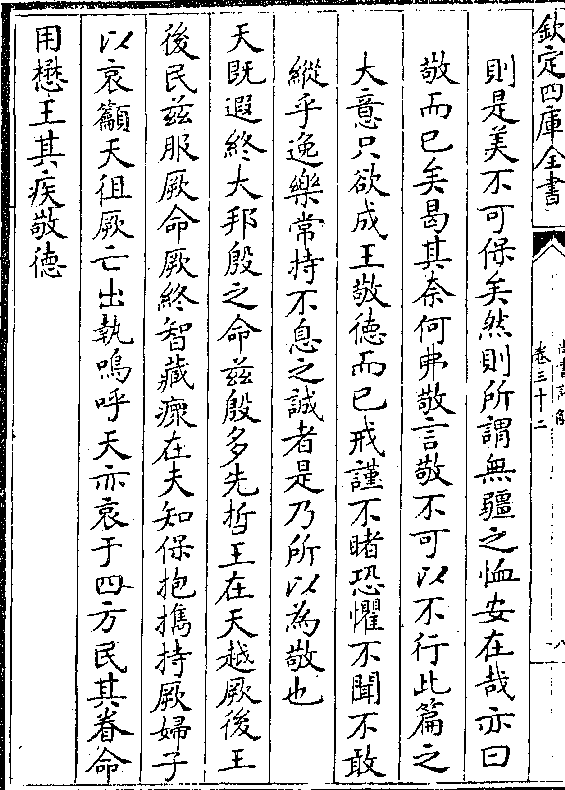 欽定四庫全書
卷三十二
則是美不可保矣然則所謂無疆之恤安在哉亦曰
敬而已矣曷其奈何弗敬言敬不可以不行此篇之
大意只欲成王敬德而已戒謹不睹恐懼不聞不敢
縱乎逸樂常持不息之誠者是乃所以為敬也
天既遐終大邦殷之命兹殷多先哲王在天越厥後王
後民兹服厥命厥終智藏瘝在夫知保抱攜持厥婦子
以哀籲天徂厥亡出執嗚呼天亦哀于四方民其眷命
用懋王其疾敬德